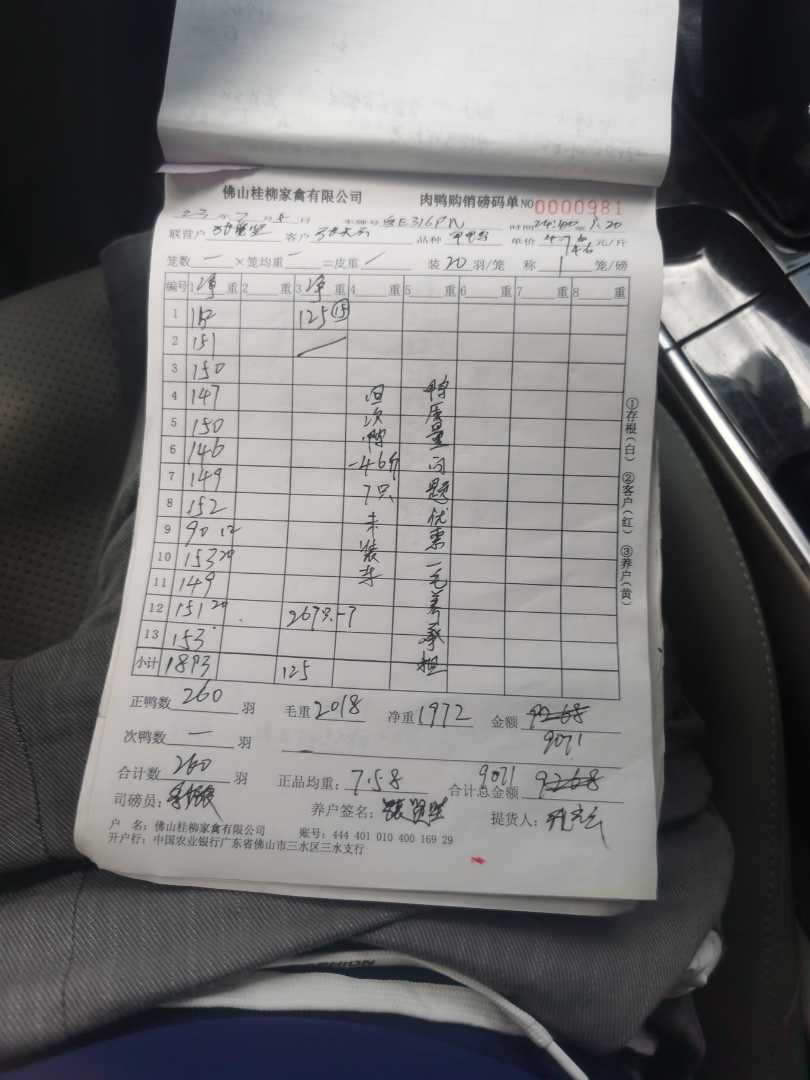 佛山桂柳家禽有限公司 肉鸭购销磅码单 NO 0000981
23 年 7 月 日 E316PN 1:20
联营户 客户 品种 单价 4.7 4.6 元/斤
笼数 一 ×笼均重 一 =皮重 / 装 20 羽/笼 称 1 笼/磅
编号 1 净 重 2 重 3 净 重 4 重 5 重 6 重 7 重 8 重
1 152 125 ⑮
2 151
3 150
4 147
5 150
6 146
7 149
8 152
9 90 12
10 153 20
11 149
12 151 20 267只-7
13 153
小计 1893 125
回次鸭-46斤7只未装车
鸭质量问题优惠一毛养承担
①存根(白) ②客户(红) ③养户(黄)
正鸭数 260 羽 毛重 2018 净重 1972 金额 9268
9071
次鸭数 一 羽
合计数 260 羽 正品均重: 7.58 合计总金额 9071 9268
司磅员: 养户签名: 提货人:
户 名: 佛山桂柳家禽有限公司 账号: 444 401 010 400 169 29
开户行: 中国农业银行广东省佛山市三水区三水支行